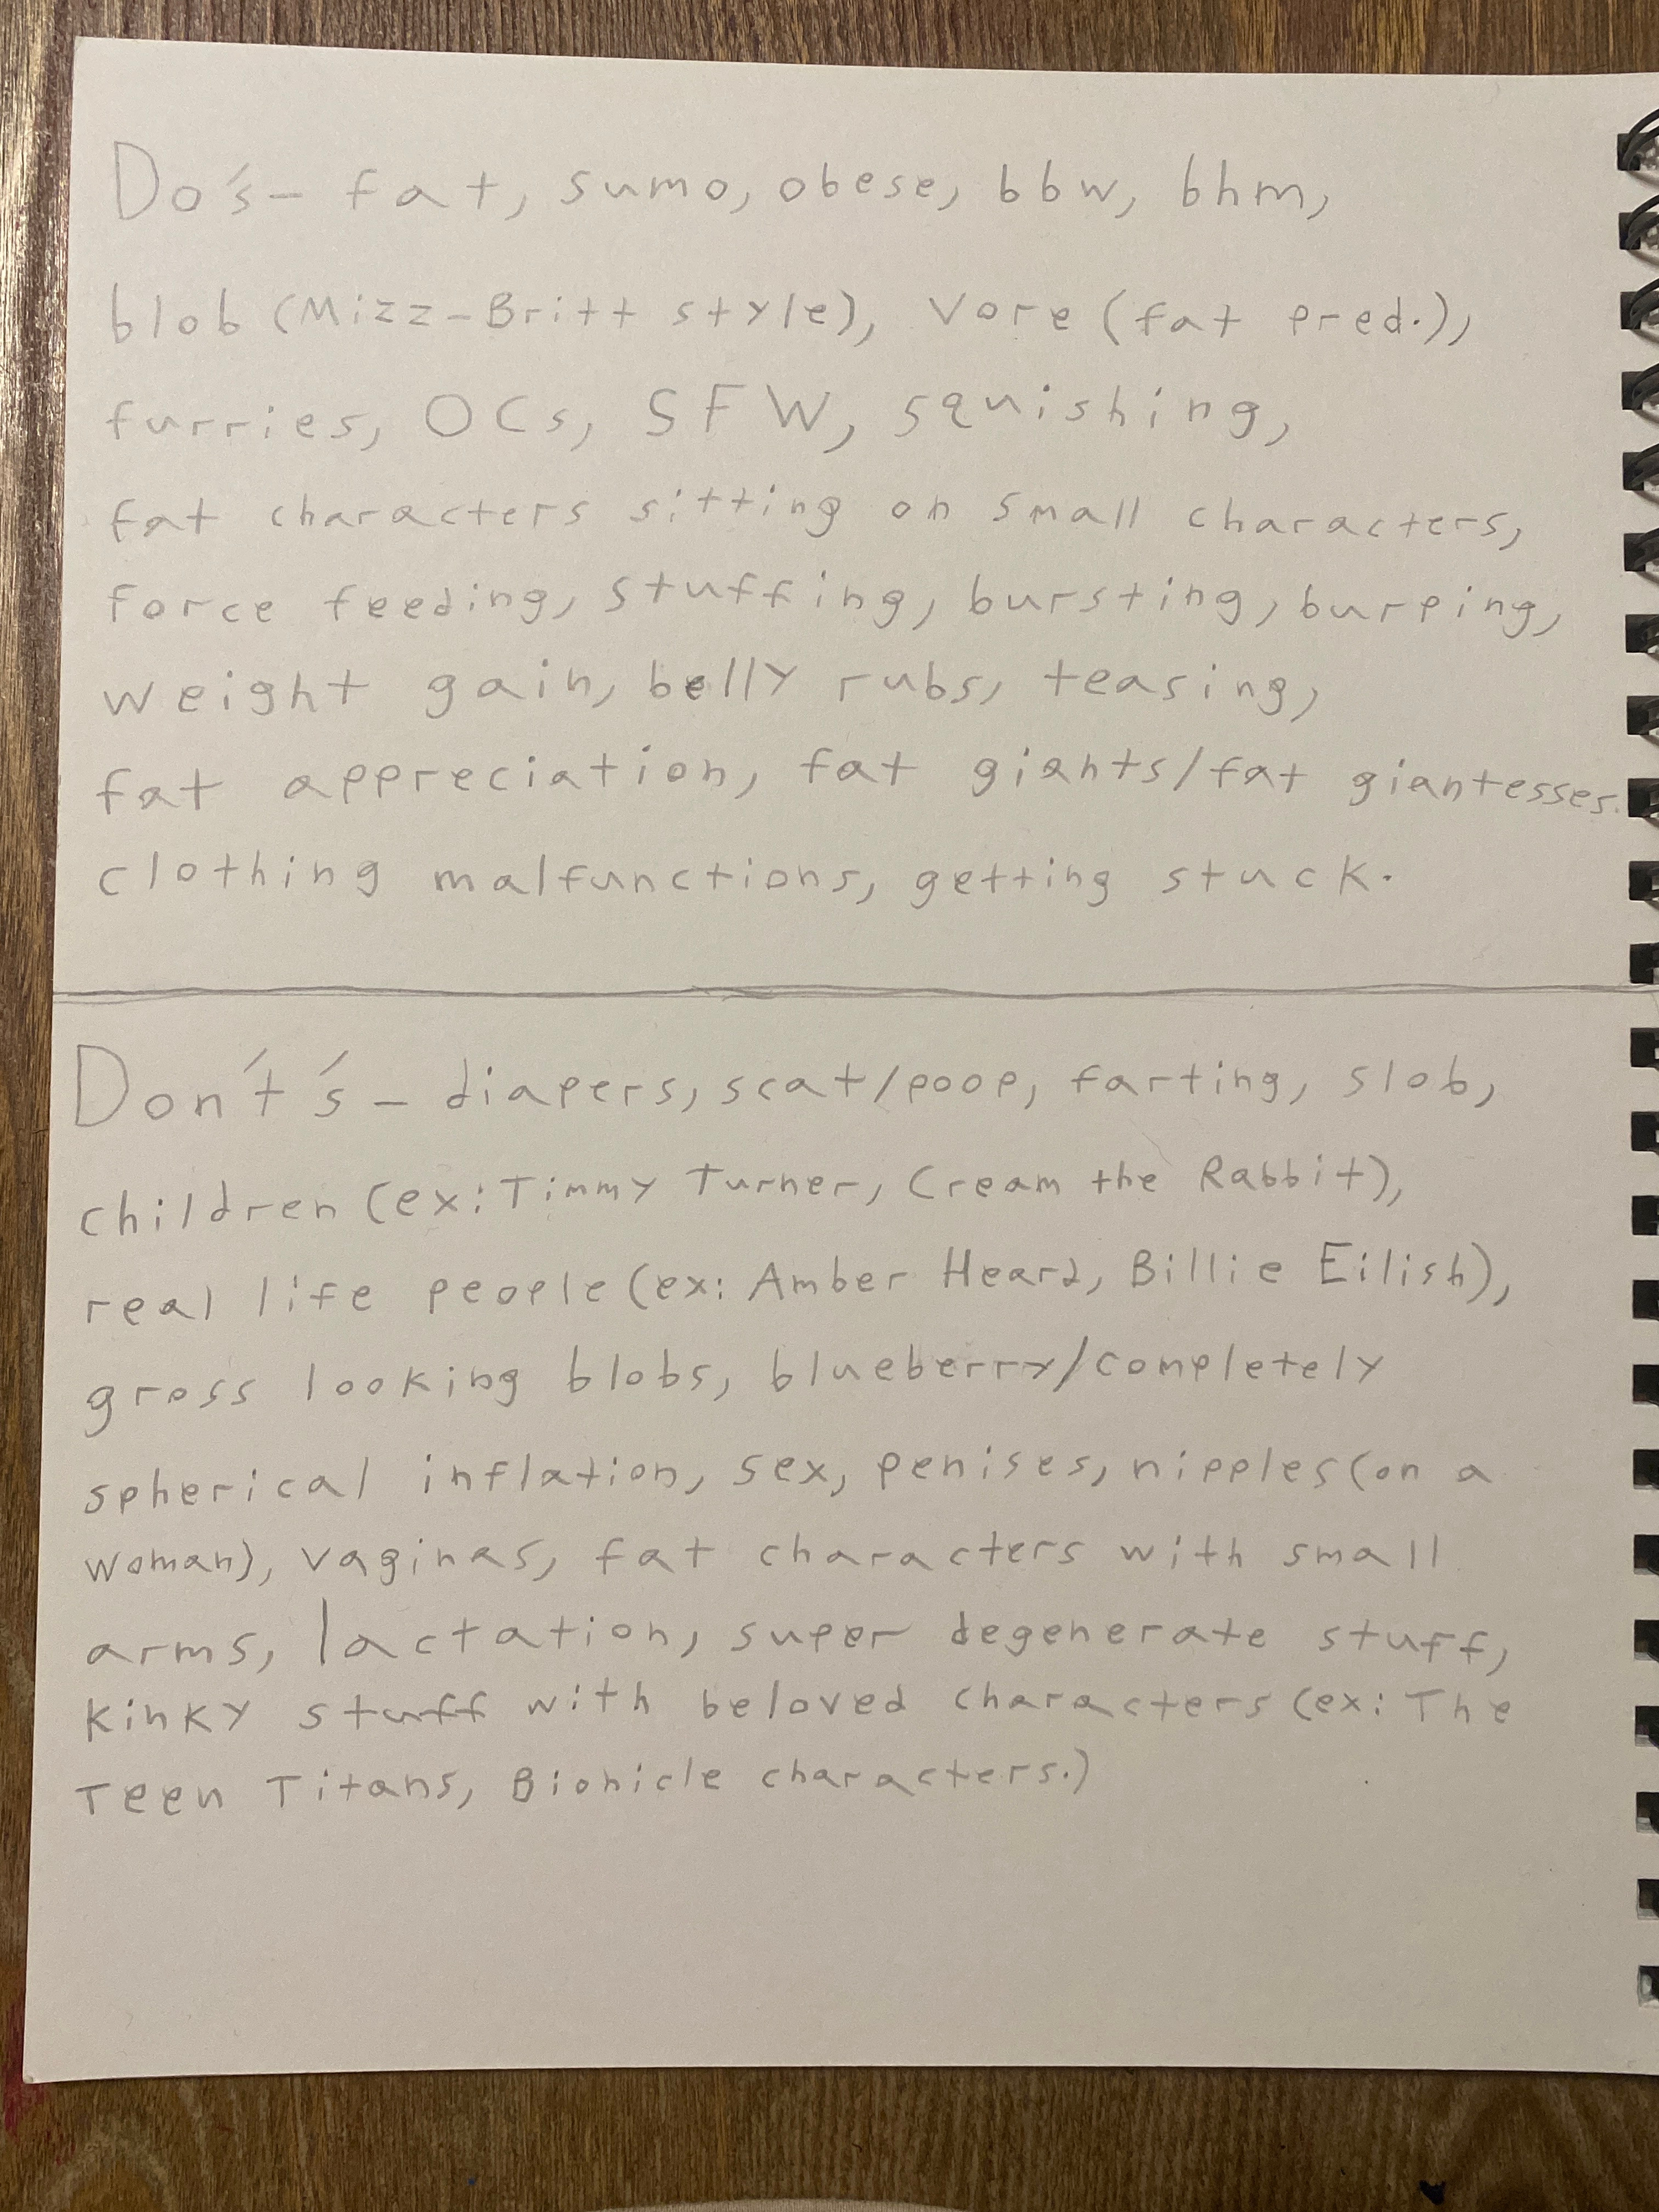 Do's- fat, sumo, obese, bbw, bhm,
blob (Mizz-Britt style), Vore (fat pred.),
furries, OCs, SFW, squishing,
fat characters sitting on small characters,
force feeding, stuffing, bursting, burping,
weight gain, belly rubs, teasing,
fat appreciation, fat giants/fat giantesses.
clothing malfunctions, getting stuck.
Don't's- diapers, scat/poop, farting, slob,
children (ex: Timmy Turner, Cream the Rabbit),
real life people (ex: Amber Heard, Billie Eilish),
gross looking blobs, blueberry/completely
spherical inflation, sex, penises, nipples (on a
woman), vaginas, fat characters with small
arms, lactation, super degenerate stuff,
kinky stuff with beloved characters (ex: The
Teen Titans, Bionicle characters.)